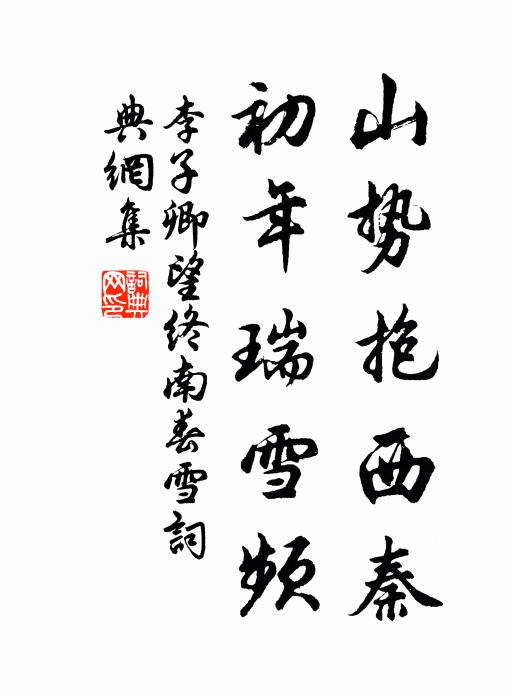 山势抱西秦
初年瑞雪频
李子卿望终南春雪詞
典網集
詞典網印